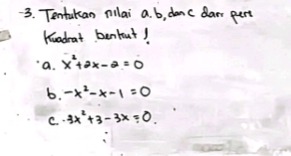 3. Tentukan nilai a.b, dan c dari pers
kuadrat berikut !
a. x²+2x-2=0
b. -x²-x-1=0
c. -3x²+3-3x=0.